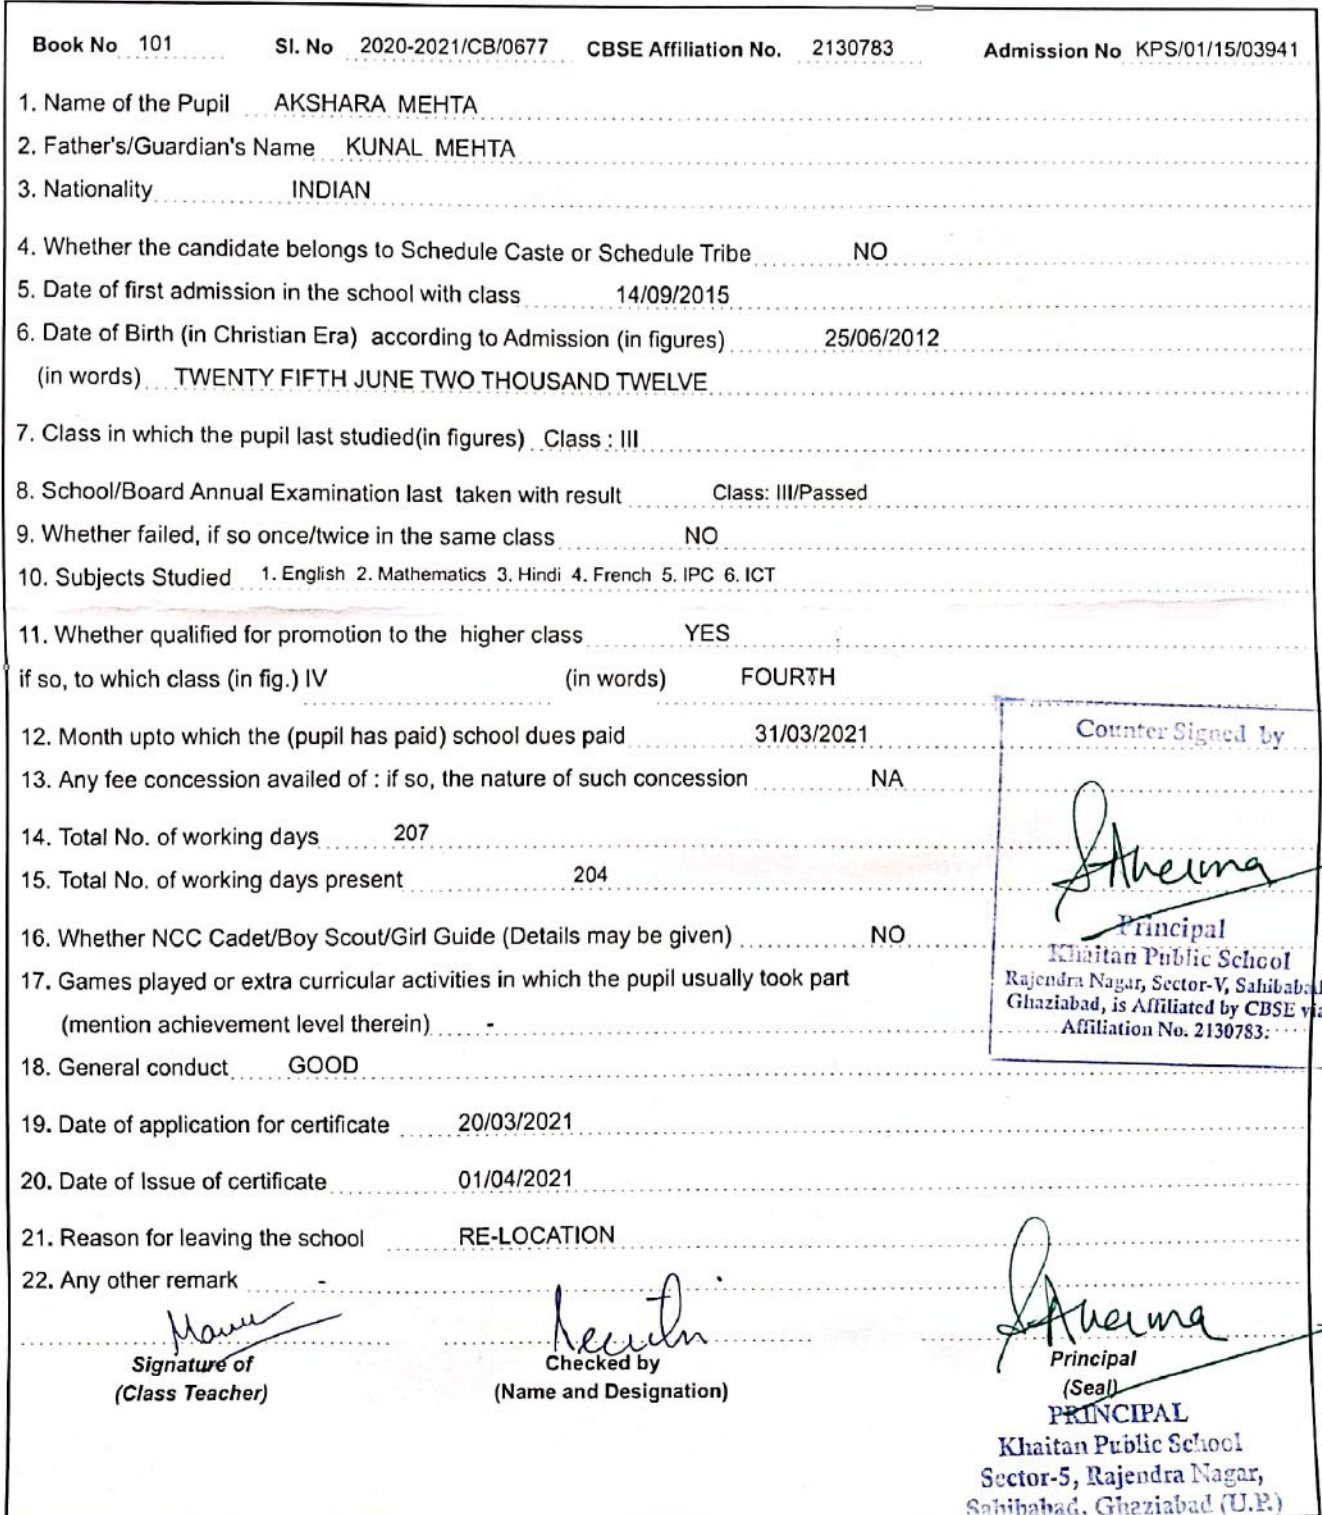 Book No 101 Sl. No 2020-2021/CB/0677 CBSE Affiliation No. 2130783 Admission No KPS/01/15/03941
1. Name of the Pupil AKSHARA MEHTA
2. Father's/Guardian's Name KUNAL MEHTA
3. Nationality INDIAN
4. Whether the candidate belongs to Schedule Caste or Schedule Tribe NO
5. Date of first admission in the school with class 14/09/2015
6. Date of Birth (in Christian Era) according to Admission (in figures) 25/06/2012
(in words) TWENTY FIFTH JUNE TWO THOUSAND TWELVE
7. Class in which the pupil last studied(in figures) Class : III
8. School/Board Annual Examination last taken with result Class: III/Passed
9. Whether failed, if so once/twice in the same class NO
10. Subjects Studied 1. English 2. Mathematics 3. Hindi 4. French 5. IPC 6. ICT
11. Whether qualified for promotion to the higher class YES
if so, to which class (in fig.) IV (in words) FOURTH
12. Month upto which the (pupil has paid) school dues paid 31/03/2021
13. Any fee concession availed of : if so, the nature of such concession NA
14. Total No. of working days 207
15. Total No. of working days present 204
16. Whether NCC Cadet/Boy Scout/Girl Guide (Details may be given) NO
17. Games played or extra curricular activities in which the pupil usually took part
(mention achievement level therein) -
18. General conduct GOOD
Counter Signed by
Principal
Khaitan Public School
Rajendra Nagar, Sector-V, Sahibabad
Ghaziabad, is Affiliated by CBSE via
Affiliation No. 2130783:
19. Date of application for certificate 20/03/2021
20. Date of Issue of certificate 01/04/2021
21. Reason for leaving the school RE-LOCATION
22. Any other remark -
Signature of
(Class Teacher)
Checked by
(Name and Designation)
Principal
(Seal)
PRINCIPAL
Khaitan Public School
Sector-5, Rajendra Nagar,
Sahibabad, Ghaziabad (U.P.)